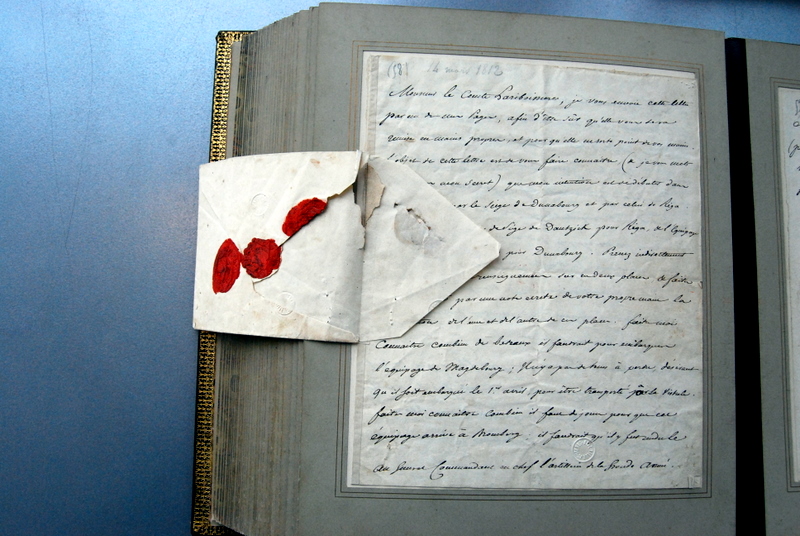 (58) 14 mars 1812
Monsieur le Comte Lariboissiere, je vous envoie cette lettre
par un de mes Pages, afin d'être sûr qu'elle vous sera
remise en mains propres, et pour qu'elle ne sorte point de vos mains.
l'objet de cette lettre est de vous faire connaitre (
mon secret) que mon intention est de débuter dans
par le Siege de Dunabourg et par celui de Riga.
de Siége de Dantzick pour Riga, de l'Equipage
pour Dunabourg. Prenez
renseignemens sur ces deux places et faites
par une note écrite de votre propre main la
de l'une et de l'autre de ces places. faites moi
Connaitre combien de bateaux il faudrait pour embarquer
l'équipage de Magdebourg; Il n'y a pas de tems à perdre
qu'il soit embarqué le 1er avril, pour être transporté par la Vistule.
faites moi connaitre combien il faut de jours pour que cet
équipage arrive à Bromberg. il faudrait qu'il y fut rendu le
Au Général Commandant en chef l'artillerie de la Grande Armée.